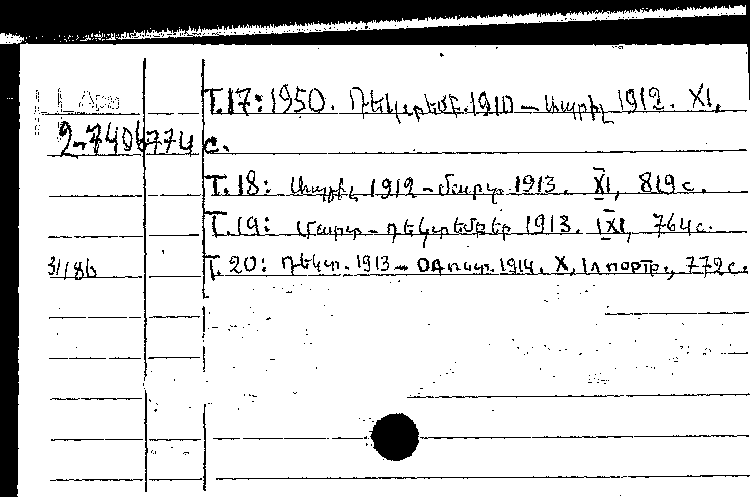 Լ Арм
Т.17: 1950. Դեկտեմբ. 1910 – Ապրիլ 1912. XI,
2-7406 774 с.
Т. 18: Ապրիլ 1912 – Մարտ 1913. XI, 819 с.
Т. 19: Մարտ – Դեկտեմբեր 1913. IXI, 764 с.
31/86 Т. 20: Դեկտ. 1913 – Օգոստ. 1914. X, 1 л портр., 772 с.